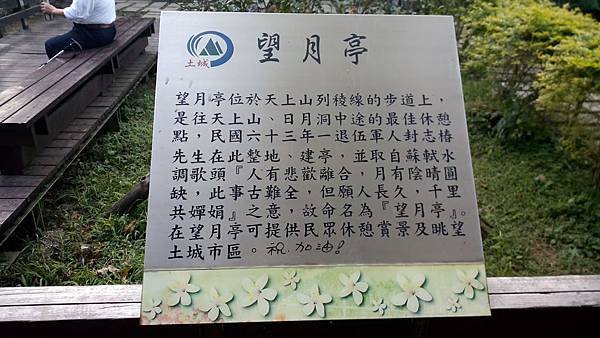 土城
望月亭
望月亭位於天上山列稜線的步道上，
是往天上山、日月洞中途的最佳休憩
點，民國六十三年一退伍軍人封志椿
先生在此整地、建亭，並取自蘇軾水
調歌頭『人有悲歡離合，月有陰晴圓
缺，此事古難全，但願人長久，千里
共嬋娟』之意，故命名為『望月亭』。
在望月亭可提供民眾休憩賞景及眺望
土城市區。祝.加油!